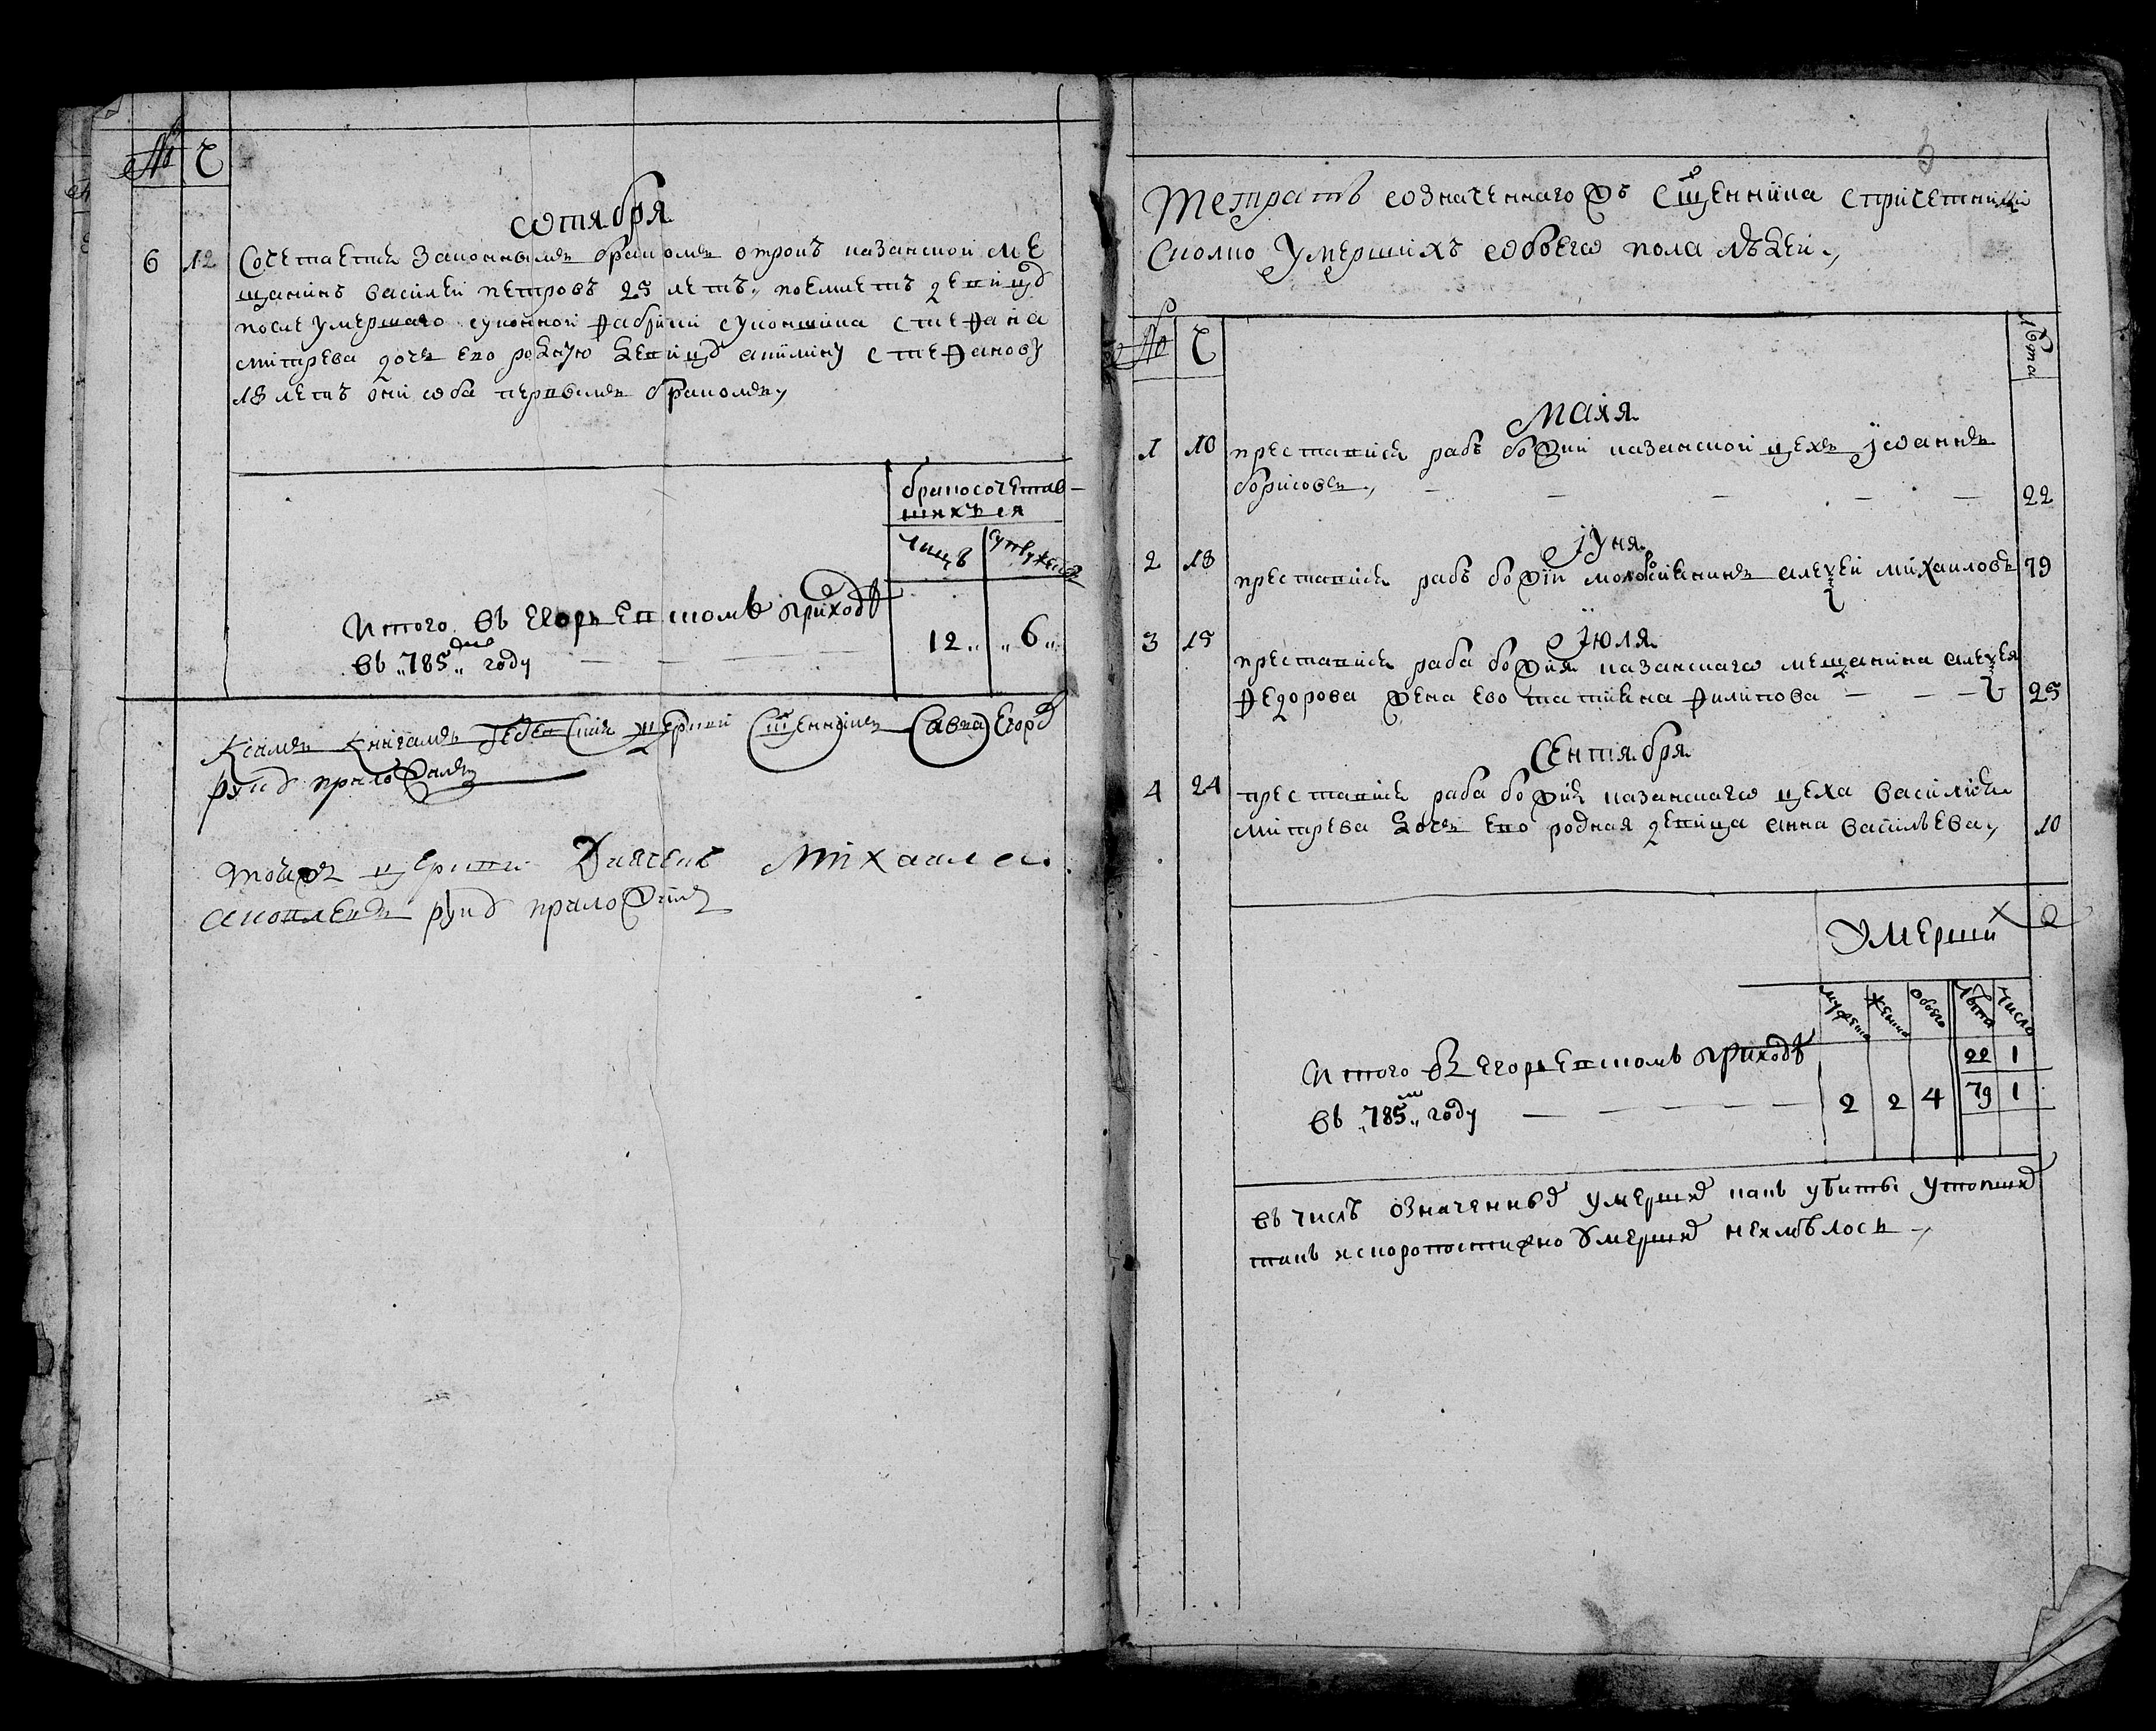 № Ч
Октября
6 12 Сочетается законнымъ бракомъ отрокъ казанской ме
щанинъ василей петровъ 25 летъ, поемлетъ девицу
после умершаго суконной фабрики суконщика стефана
митрева дочь ево родную девицу акилину стефанову
18 летъ они оба первымъ бракомъ,
бракосочетав-
шихъся
лицъ супружествъ
Итого въ Егорьевскомъ приходѣ
въ „785„ году 12„ „6„
К симъ книгамъ церкви Сщенникъ Савва Егоровъ
руку приложилъ
тойже церкви Дьячекъ Михаила
руку приложилъ
Тетрать означеннаго ж Сщенника с причетники
сколко умершихъ обоего пола людей,
№ Ч лѣта
Маия
1 10 преставися рабъ божий казанской цехъ Иоаннъ
борисовъ, — — — — — 22
Иуня
2 18 преставися рабъ божiи алеѯей михаиловъ 79
Июля
3 15 преставися раба божия казанскаго мещанина алеѯея
Федорова жена ево татияна филипова — — — 25
Сентября
4 24 преставися раба божия казанскаго цеха василия
митрева дочь ево родная девица анна васильева, 10
Умерши х
мужеска женска обоего лѣта число
Итого въ Егорьевскомъ приходѣ 22 1
въ „785„ году — — — — — 2 2 4 79 1
въ числѣ означенныхъ умершихъ какъ убиты утопших
такъ и скоропостижно умершихъ неимѣлось,